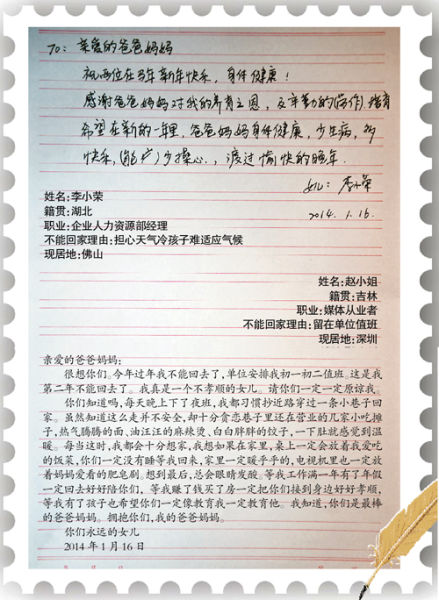 To: 亲爱的爸爸妈妈
祝两位在马年新年快乐，身体健康！
感谢爸爸妈妈对我的养育之恩，及辛勤的
希望在新的一年里，爸爸妈妈身体健康，少生病，多
快乐，少操心，渡过愉快的晚年.
女儿：李小荣
2014.1.16.
姓名：李小荣
籍贯：湖北
职业：企业人力资源部经理
不能回家理由：担心天气冷孩子难适应气候
现居地：佛山
姓名：赵小姐
籍贯：吉林
职业：媒体从业者
不能回家理由：留在单位值班
现居地：深圳
亲爱的爸爸妈妈：
很想你们。今年过年我不能回去了，单位安排我初一初二值班。这是我
第二年不能回去了。我真是一个不孝顺的女儿。请你们一定一定原谅我。
你们知道吗，每天晚上下了夜班，我都习惯抄近路穿过一条小巷子回
家。虽然知道这么走并不安全，却十分贪恋巷子里还在营业的几家小吃摊
子，热气腾腾的面、油汪汪的麻辣烫、白白胖胖的饺子，一下肚就感觉到温
暖。每当这时，我都会十分想家，我想如果在家里，桌上一定会放着我爱吃
的饭菜，你们一定没有睡等我回来，家里一定暖乎乎的，电视机里也一定放
着妈妈爱看的肥皂剧。想到最后，总会眼睛发酸。等我工作满一年有了年假
一定回去好好陪你们，等我赚了钱买了房一定把你们接到身边好好孝顺，
等我有了孩子也希望你们一定像教育我一定教育他。我知道，你们是最棒
的爸爸妈妈。拥抱你们，我的爸爸妈妈。
你们永远的女儿
2014年1月16日